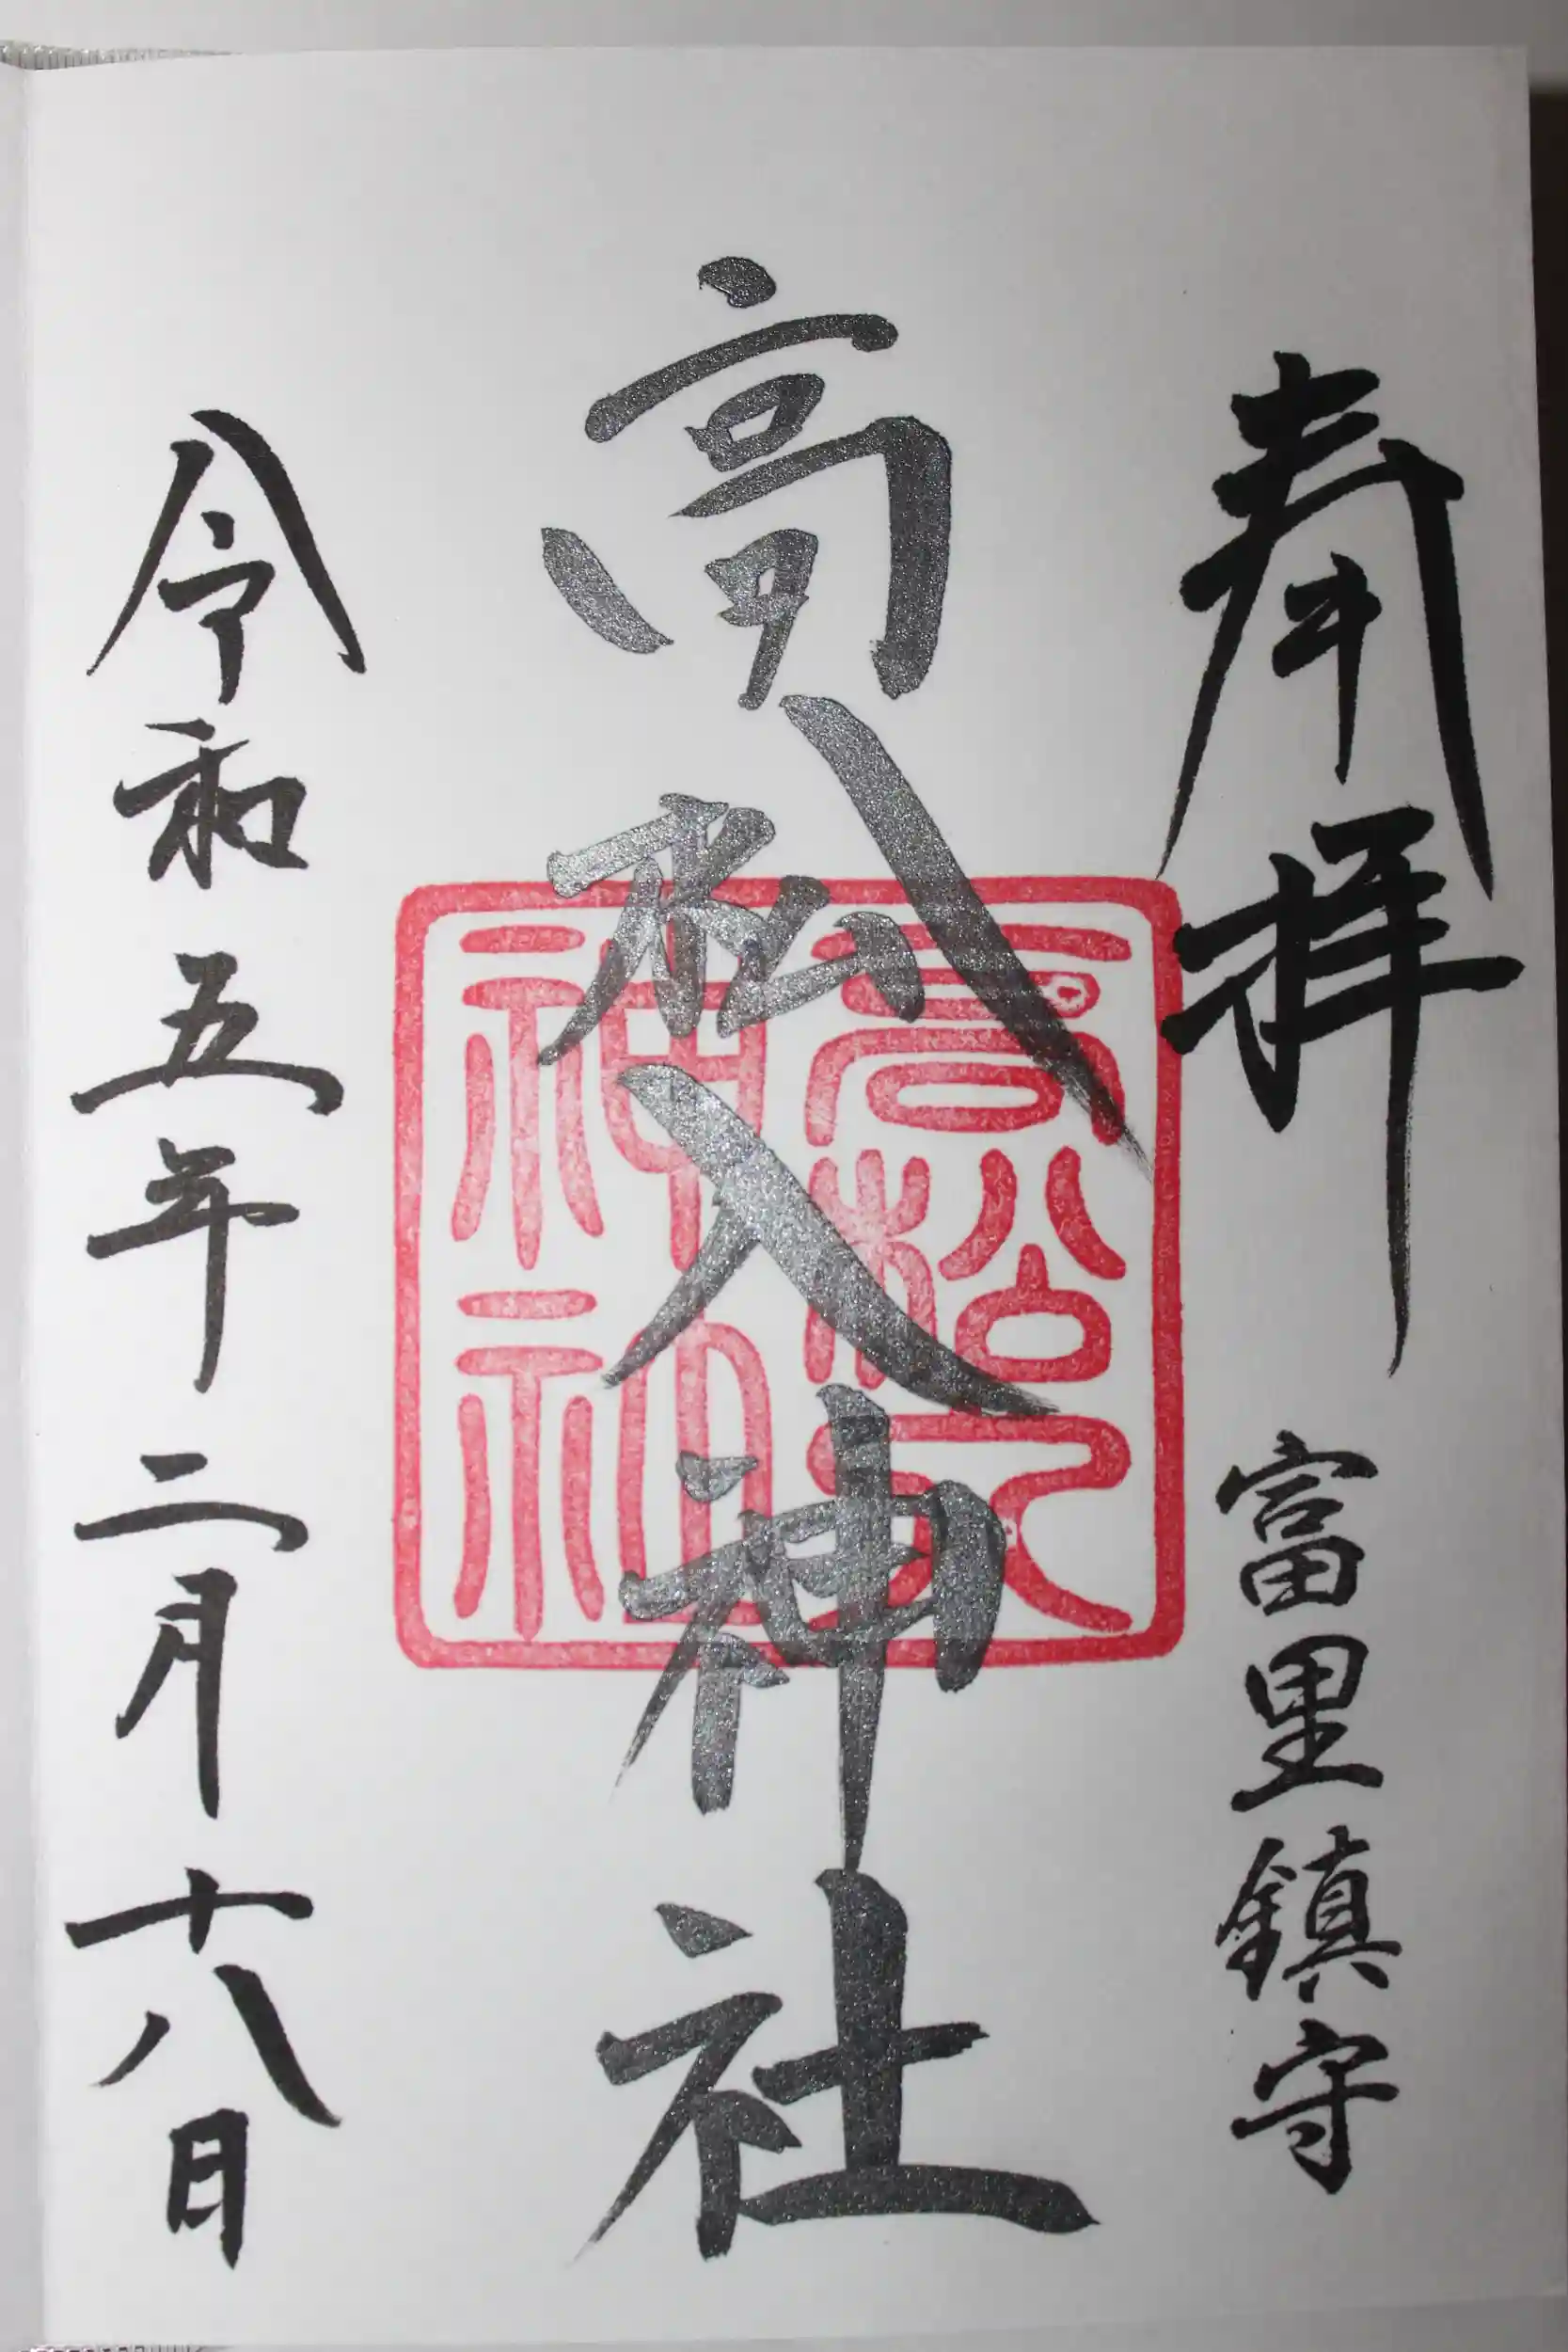 奉拝 富里鎮守
高松入神社
高松入
神社
令和五年二月十八日